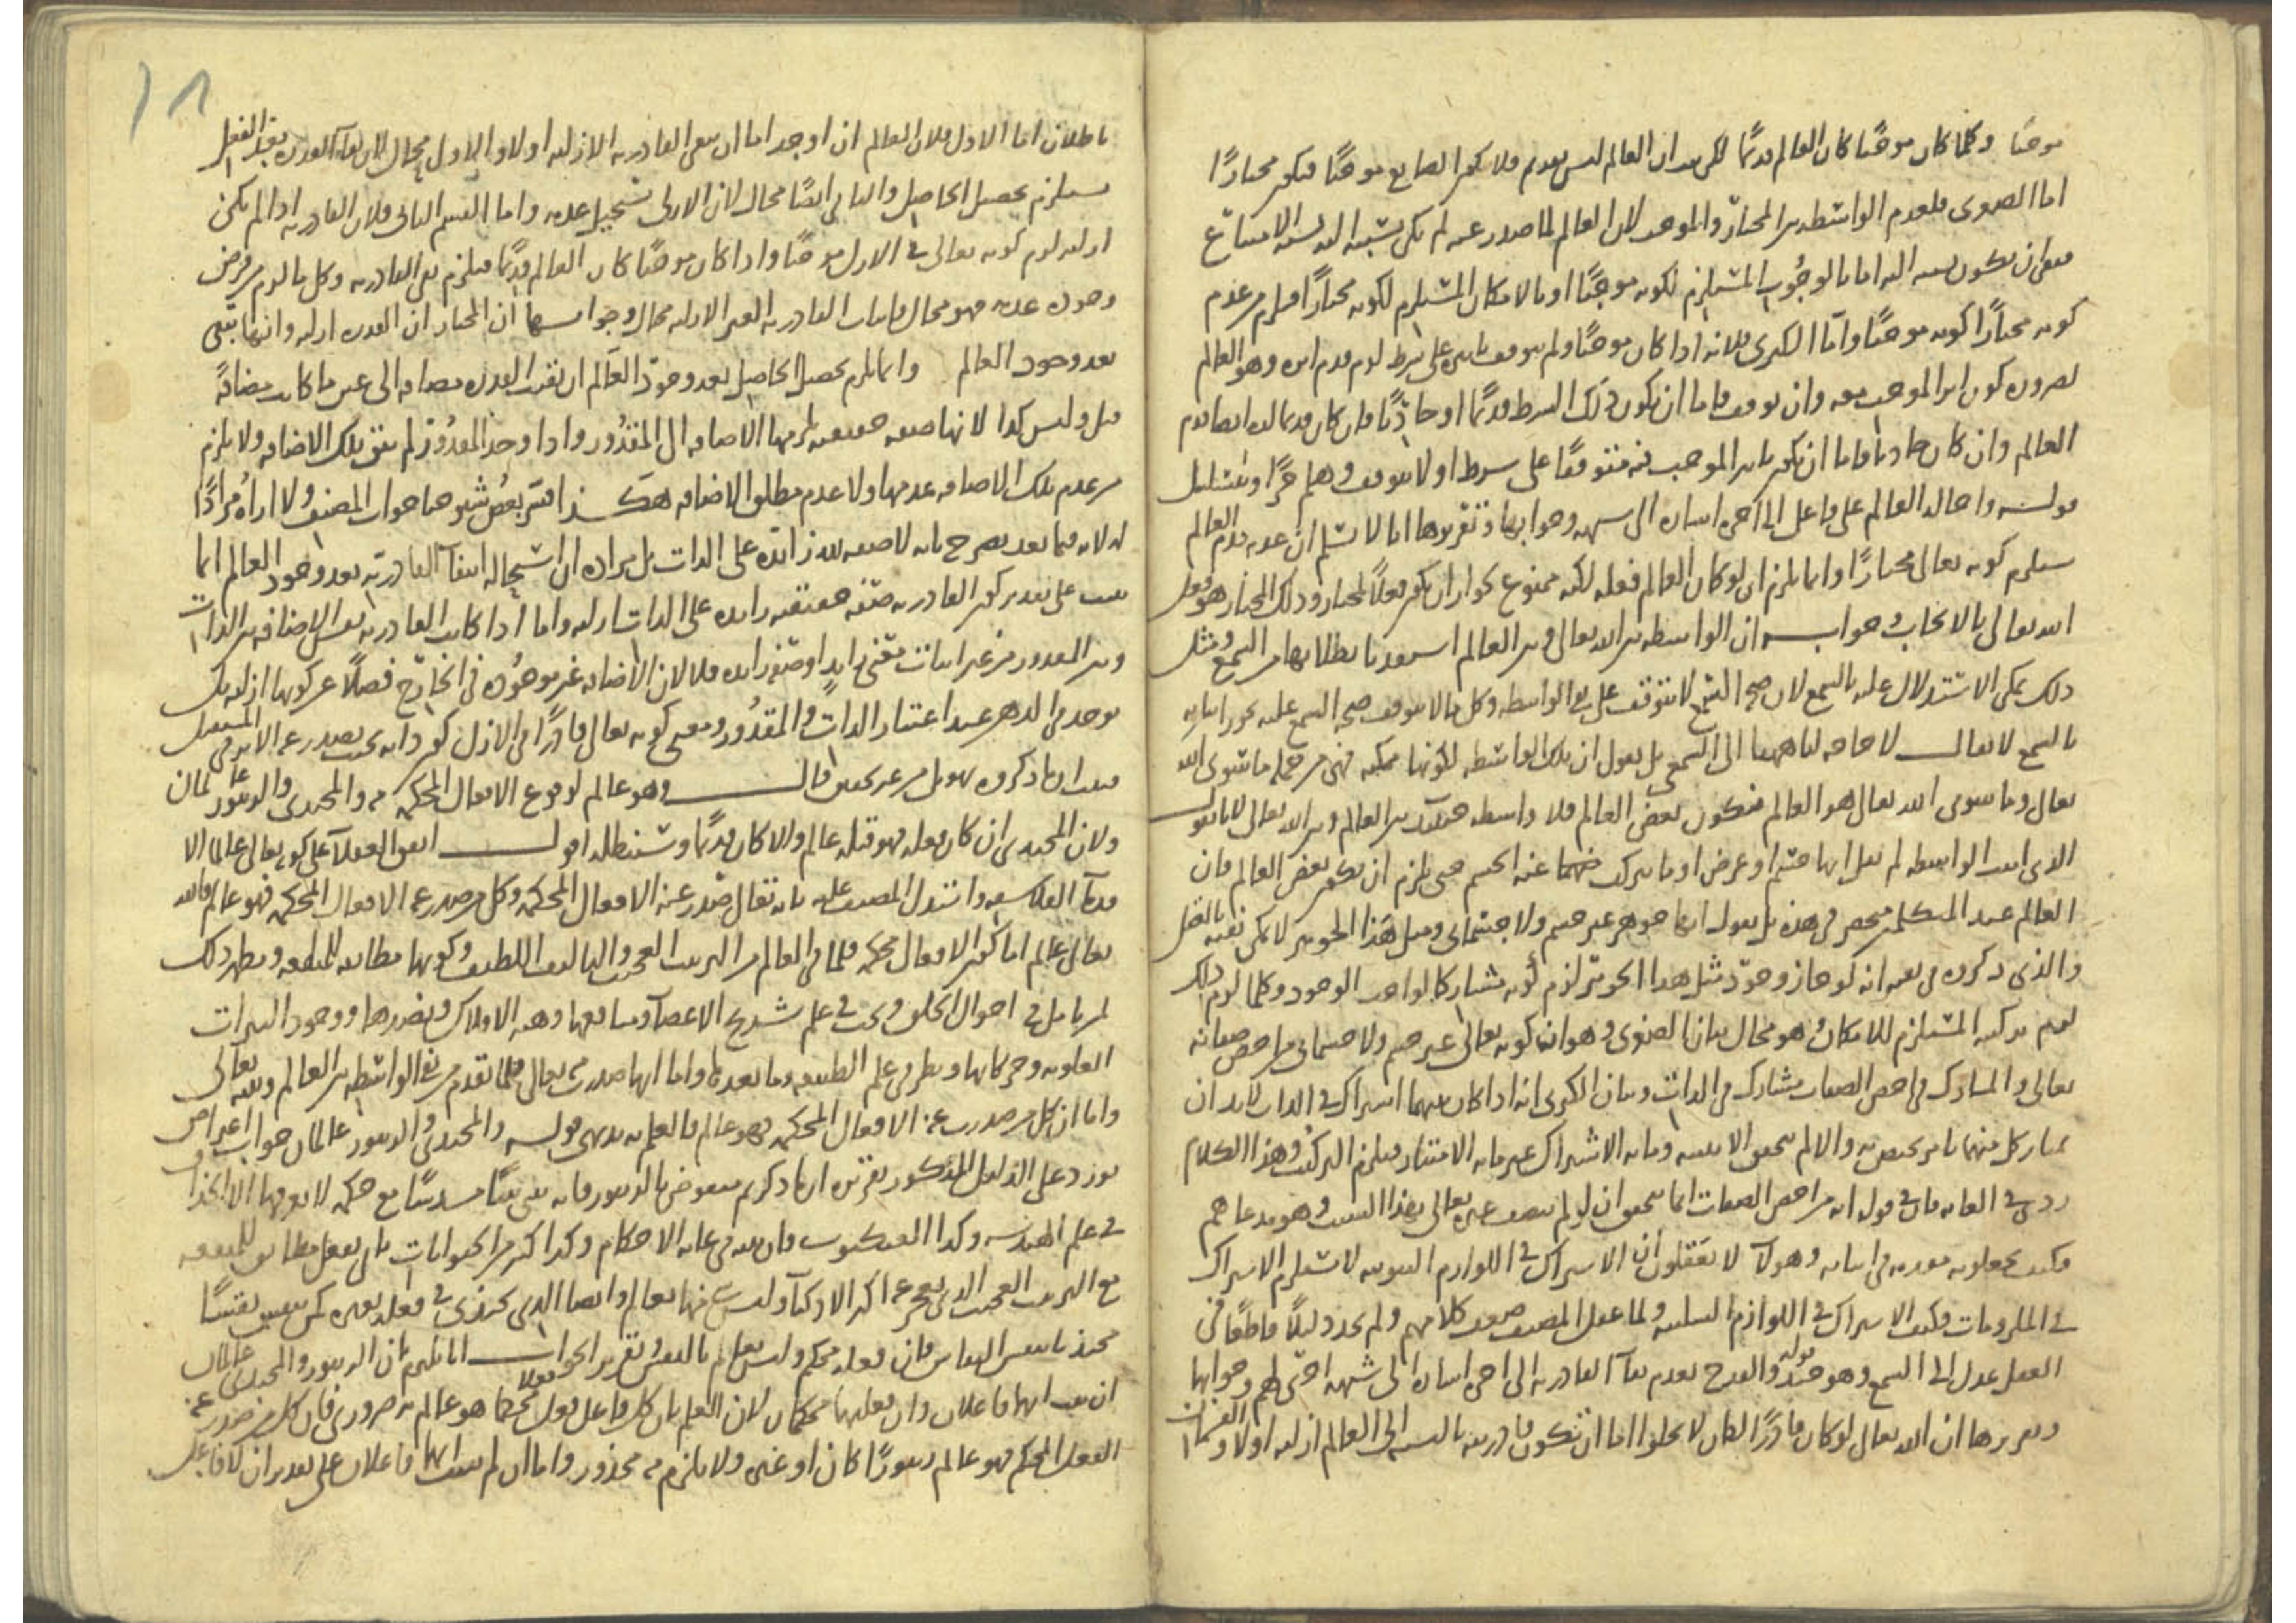 موجبًا وكلما كان موجبًا كان العالم قديمًا لكن العالم ليس بقديم فلا يكون الصانع موجبًا فيكون مختارًا
اما الصغرى فلعدم الواسطة بين المختار والموجب لان العالم لما صدر عنه لم يكن نسبته اليه نسبة الامتناع
فبقي ان يكون نسبته اليه اما بالوجوب المستلزم لكونه موجبًا او بالامكان المستلزم لكونه مختارًا فيلزم من عدم
كونه مختارًا كونه موجبًا واما الكبرى فلانه اذا كان موجبًا ولم يتوقف تاثيره على شرط لزم قدم اثره وهو العالم
لضرورة كون اثر الموجب معه وان توقف فاما ان يكون ذلك الشرط قديمًا او حادثًا فان كان قديما لزم ايضا قدم
العالم وان كان حادثا فاما ان يكون تاثير الموجب فيه متوقفًا على شرط او لا يتوقف وهلم جرًا ويتسلسل
قوله واحاله العالم على فاعل الى اخره اشارة الى شبهة وجوابها وتقريرها انا لا نسلم ان عدم قدم العالم
يستلزم كونه تعالى مختارًا وانما يلزم ان لو كان العالم فعله لكنه ممنوع لجواز ان يكون فعلًا لمختار وذلك المختار هو فعل
الله تعالى بالايجاب وجوابه ان الواسطة بين الله تعالى وبين العالم استفدنا بطلانها من السمع ومثل
ذلك يمكن الاستدلال عليه بالسمع لان صحة السمع لا يتوقف على نفي الواسطة وكل ما لا يتوقف صحة السمع عليه يجوز اثباته
بالسمع لا يقال لا حاجة لنا هاهنا الى السمع بل نقول ان تلك الواسطة لكونها ممكنة فهي من جملة ما سوى الله
تعالى وما سوى الله تعالى هو العالم فتكون بعض العالم فلا واسطة حينئذ بين العالم وبين الله تعالى لانا نقول
الذي اثبت الواسطة لم يقل انها جسم او عرض او ما تركب عنه الجسم حتى يلزم ان يكون بعض العالم فان
العالم عند المتكلمين منحصر في هذه بل يقول انها جوهر غير جسم ولا جسماني ومثل هذا الجوهر لا يمكن نفيه بالعقل
والذي ذكروه في نفيه انه لو جاز وجود مثل هذا الجوهر لزم كونه مشاركا لواجب الوجود وكلما لزم ذلك
لزم تركبه المستلزم للامكان وهو محال بيان الصغرى وهو ان كونه تعالى غير جسم ولا جسماني من اخص صفاته
تعالى والمشارك في اخص الصفات مشارك في الذات وبيان الكبرى انه اذا كان بينهما اشتراك في الذات لا بد ان
يمتاز كل منهما بامر يختص به والا لم يتحقق الاثنينية وما به الاشتراك غير ما به الامتياز فيلزم التركيب وهذا الكلام
ردي في الغاية فان في قوله انه من اخص الصفات انما يتحقق ان لو لم يتصف غيره تعالى بهذا السلب وهو مدعاهم
فكيف يجعلونه مقدمة في اثباته وهولآ لا يعقلون ان الاشتراك في اللوازم الثبوتية لا يستلزم الاشتراك
في الملزومات فكيف الاشتراك في اللوازم السلبية ولما عقل المصنف ضعف كلامهم ولم يجد دليلًا قاطعًا في
العقل عدل الى السمع وهو جيد قوله والقدح بعدم بقآ القادرية الى اخره اشارة الى شبهة اخرى لهم وجوابها
وتقريرها ان الله تعالى لو كان قادرًا لكان لا يخلوا اما ان تكون قادريته بالنسبة الى العالم ازلية اولا والقسمان
باطلان اما الاول فلان العالم ان اوجد اما ان يبقى القادرية الازلية اولا والاول محال لان بقآ القدرة بعد الفعل
يستلزم تحصيل الحاصل والثاني ايضًا محال لان الازلي يستحيل عدمه واما القسم الثاني فلان القادرية اذا لم تكن
ازلية لزم كونه تعالى في الازل موجبًا واذا كان موجبًا كان العالم قديمًا فيلزم نفي القادرية وكل ما لزم من فرض
وجوده عدمه فهو محال فاثبات القادرية الغير الازلية محال وجوابها ان المختار ان القدرة ازلية وانها تبقى
بعد وجود العالم وانما يلزم تحصيل الحاصل بعد وجود العالم ان بقيت القدرة مضافة الى عين ما كانت مضافةً
قبل وليس كذا لانها صفة حقيقية يلزمها الاضافة الى المقدور واذا وجد المقدور لم تبق تلك الاضافة ولا يلزم
من عدم تلك الاضافة عدمها ولا عدم مطلق الاضافة هكذا فسر بعض شيوخنا جواب المصنف ولا اراه مرادًا
له لانه فيما بعد يصرح بانه لا صفة لله زائدة على الذات بل مراده ان استحالة انتفآ القادرية بعد وجود العالم انما
يثبت على تقدير كون القادرية صفة حقيقية زائدة على الذات ازلية واما اذا كانت القادرية نفس الاضافة بين الذات
وبين المقدور من غير اثبات معنى زايد او صفة زايدة فلا لان الاضافة غير موجودة في الخارج فضلًا عن كونها ازلية بل
توجد في الذهن عند اعتبار الذات والمقدور ومعنى كونه تعالى قادرًا في الازل كون ذاته بحيث يصدر عنه الاثر في المستقبل
فثبت ان ما ذكروه تهويل من غير تحقيق قال وهو عالم لوقوع الافعال المحكمة منه والمحتذي والزنبور عالمان
ولان المحتدي ان كان فعله فهو قبله عالم والا كان قديمًا وسنبطله اقول اتفق العقلآ على كونه تعالى عالما الا
قدمآ الفلاسفة واستدل المصنف عليه بانه تعالى صدر عنه الافعال المحكمة وكل من صدر عنه الافعال المحكمة فهو عالم فالله
تعالى عالم اما كون الافعال محكمة فلما في العالم من الترتيب العجيب والتاليف اللطيف وكونها مطابقة للمنفعة ويظهر ذلك
لمن تامل في احوال الخلق وبحث في علم تشريح الاعضآ ومنافعها وهيئة الافلاك ونضدها ووجود النيرات
العلوية وحركاتها ونظر في علم الطبيعة وما بعدها واما انها صدرت عنه تعالى فلما تقدم من نفي الواسطة بين العالم وبينه تعالى
واما ان كل من صدرت عنه الافعال المحكمة فهو عالم فالعلم به بديهي قوله والمحتدي والزنبور عالمان جواب اعتراض
يورد على الدليل المذكور تقريره ان ما ذكرتم منقوض بالزنبور فانه يبني بيتًا مسدسًا مع حكمة لا يعرفها الا الحذاق
في علم الهندسة وكذا العنكبوت فان بيته في غاية الاحكام وكذا كثير من الحيوانات ياتي بفعل مطابق للمنفعة
مع الترتيب العجيب الذي يعجز عنه اكثر الاذكيآ وليس شي منها بعالم وايضا الذي يحتذي في فعله بغيره كمن ينقش نقشًا
محتذيا بنقش النقاش فان فعله محكم وليس بعالم بالنقش وتقرير الجواب انا نلتزم بان الزنبور والمحتدي عالمان
ان ثبت انهما فاعلان وان فعليهما محكمان لان العلم بان كل فاعل فعلا محكما هو عالم به ضروري فان كل من صدر عنه
الفعل المحكم فهو عالم زنبورًا كان او غيره ولا يلزم منه محذور واما ان لم يثبت انهما فاعلان على تقدير ان لا فاعل